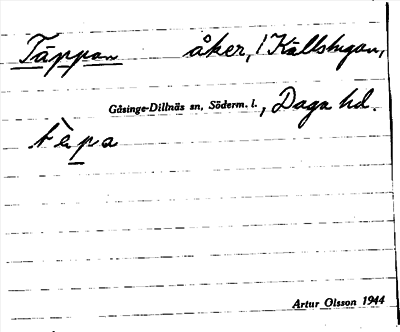 Täppan åker, 1 Källstugan,
Gåsinge-Dillnäs sn, Söderm. l., Daga hd.
tèpa
Artur Olsson 1944